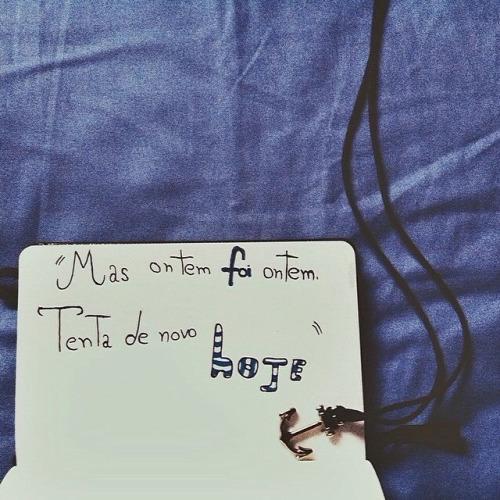 "Mas ontem foi ontem.
Tenta de novo
hOJE"